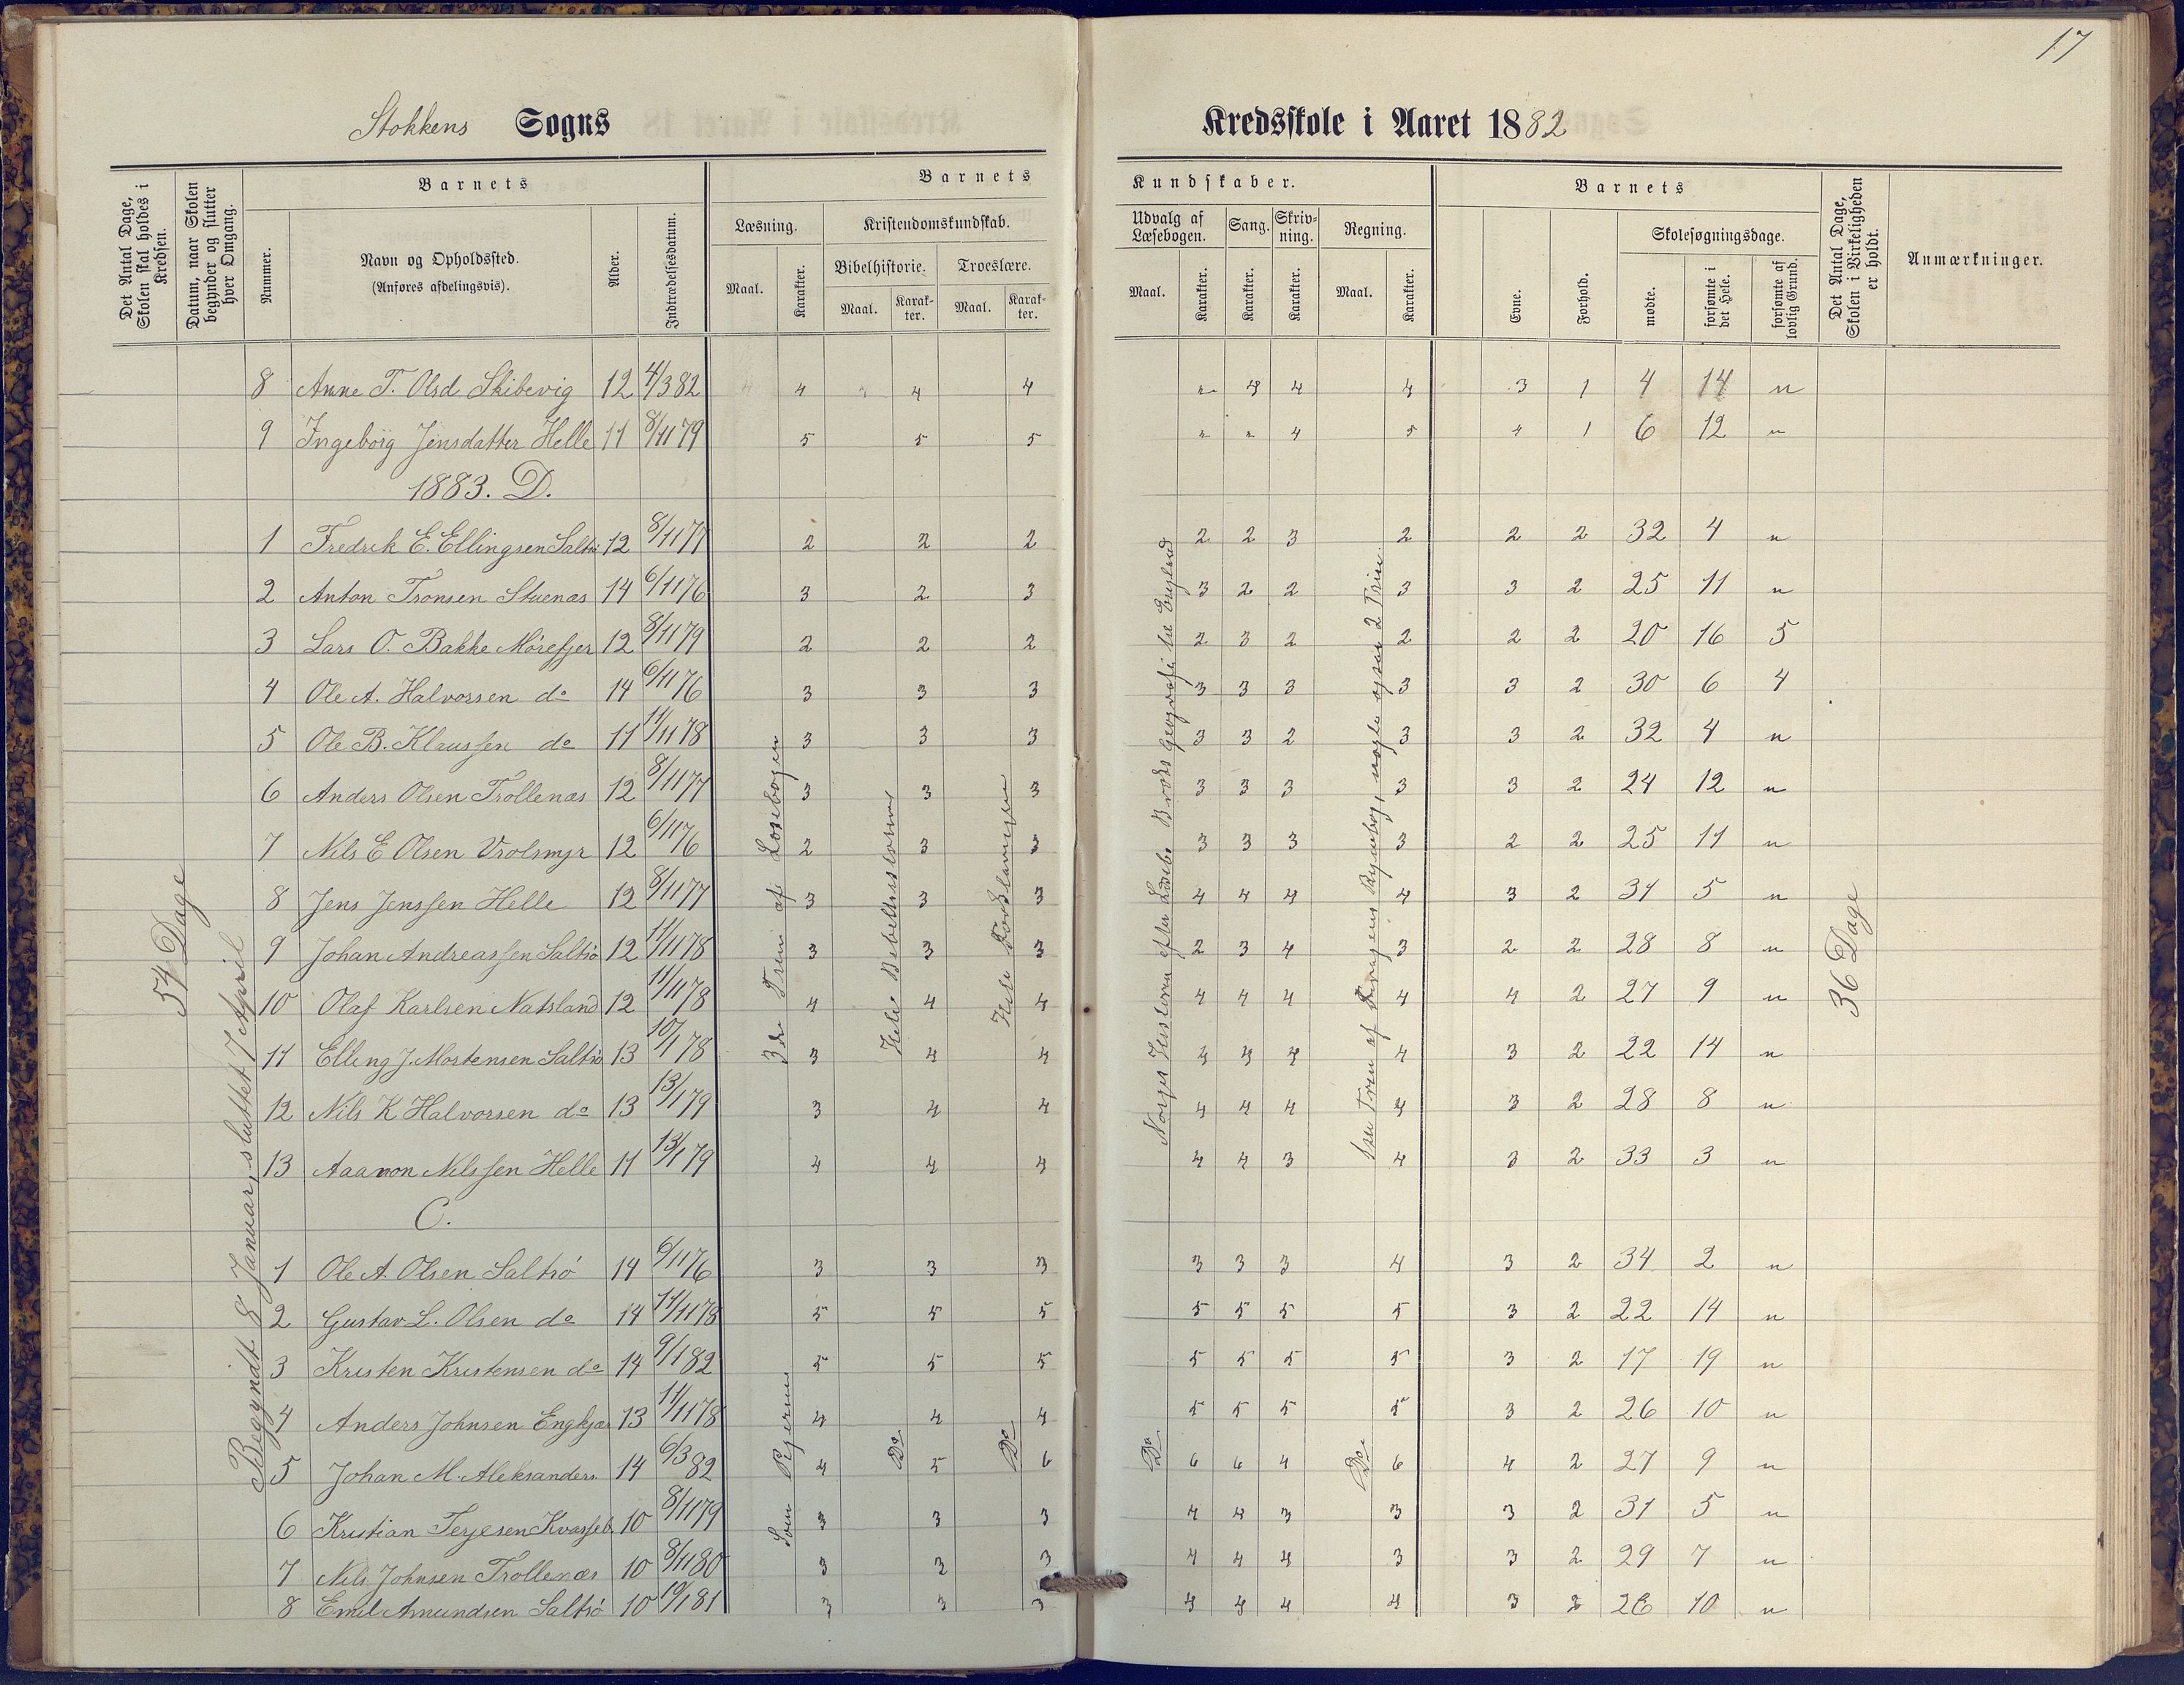 17
Stokkens Sogns Kredsskole i Aaret 1882
Det Antal Dage, Skolen skal holdes i Kredsen.
Datum, naar Skolen begynder og slutter hver Omgang.
Barnets
Nummer.
Navn og Opholdssted.
(Anføres afdelingsvis).
Alder.
Indtrædelsesdatum.
Barnets Kundskaber.
Læsning.
Maal.
Karakter.
Kristendomskundskab.
Bibelhistorie.
Maal.
Karakter.
Troeslære.
Maal.
Karakter.
Udvalg af Læsebogen.
Maal.
Karakter.
Sang.
Karakter.
Skrivning.
Karakter.
Regning.
Maal.
Karakter.
Barnets
Evne.
Forhold.
Skolesøgningsdage.
mødte.
forsømte i det Hele.
forsømte af lovlig Grund.
Det Antal Dage, Skolen i Virkeligheden er holdt.
Anmærkninger.
8 Anne T. Olsd Skibevig 12 4/3 82 4 4 4 " 4 4 4 3 1 4 14 "
9 Ingebörg Jensdatter Helle 11 8/11 79 5 5 5 " " 4 5 4 1 6 12 "
1883. D.
1 Fredrik E. Ellingsen Saltrö 12 8/11 77 2 2 2 2 2 3 2 2 2 32 4 "
2 Anton Tronsen Stuenæs 14 6/11 76 3 2 3 3 2 2 3 3 2 25 11 "
3 Lars O. Bakke Mörefjer 12 8/11 79 2 2 2 2 3 2 2 2 2 20 16 5
4 Ole A. Halvorsen do 14 6/11 76 3 3 3 3 3 3 3 3 2 30 6 4
5 Ole B. Klaussen do 11 11/11 78 3 3 3 3 3 2 3 3 2 32 4 "
6 Anders Olsen Trollenæs 12 8/11 77 3 3 3 3 3 3 3 3 2 24 12 "
7 Nils E Olsen Vrolsmyr 12 6/11 76 2 3 3 3 3 3 3 2 2 25 11 "
8 Jens Jenssen Helle 12 8/11 77 3 3 3 4 4 4 4 3 2 31 5 "
9 Johan Andreassen Saltrö 12 11/11 78 3 3 3 2 3 4 3 2 2 28 8 "
10 Olaf Karlsen Natsland 12 11/11 78 4 4 4 4 4 4 4 4 2 27 9 "
11 Elling J. Mortensen Saltrö 13 10/1 78 3 4 4 4 4 4 4 3 2 22 14 "
12 Nils K Halvorsen do 13 13/1 79 3 4 4 4 4 4 4 3 2 28 8 "
13 Aanon Nilssen Helle 11 13/1 79 4 4 4 4 4 3 4 3 2 33 3 "
C.
1 Ole A. Olsen Saltrö 14 6/11 76 3 3 3 3 3 3 4 3 2 34 2 "
2 Gustav L. Olsen do 14 11/11 78 5 5 5 5 5 5 5 3 2 22 14 "
3 Kristen Kristensen do 14 9/1 82 5 5 5 5 5 5 5 3 2 17 19 "
4 Anders Johnsen Engkjær 13 11/11 78 4 4 4 5 5 5 5 3 2 26 10 "
5 Johan M. Aleksanders. 14 6/3 82 4 5 6 6 6 4 6 4 2 27 9 "
6 Kristian Terjesen Kvasseb. 10 8/11 79 3 3 3 4 4 3 3 3 2 31 5 "
7 Nils Johnsen Trollenæs 10 8/11 80 3 3 3 4 4 4 3 3 2 29 7 "
8 Emil Amundsen Saltrö 10 19/1 81 3 3 3 4 4 4 4 3 2 26 10 "
54 Dage
Begyndt 8 Januar, sluttet 7 April
3die Trin af Læsebogen
Hele Bibelhistorien
Hele Forklaringen
Norges Historie efter Læsebo. Brocks Geografi til England
2det Trin af Regnebog, nogle ogsaa 2 Trin.
36 Dage
Som
Do
Do
Do
Do